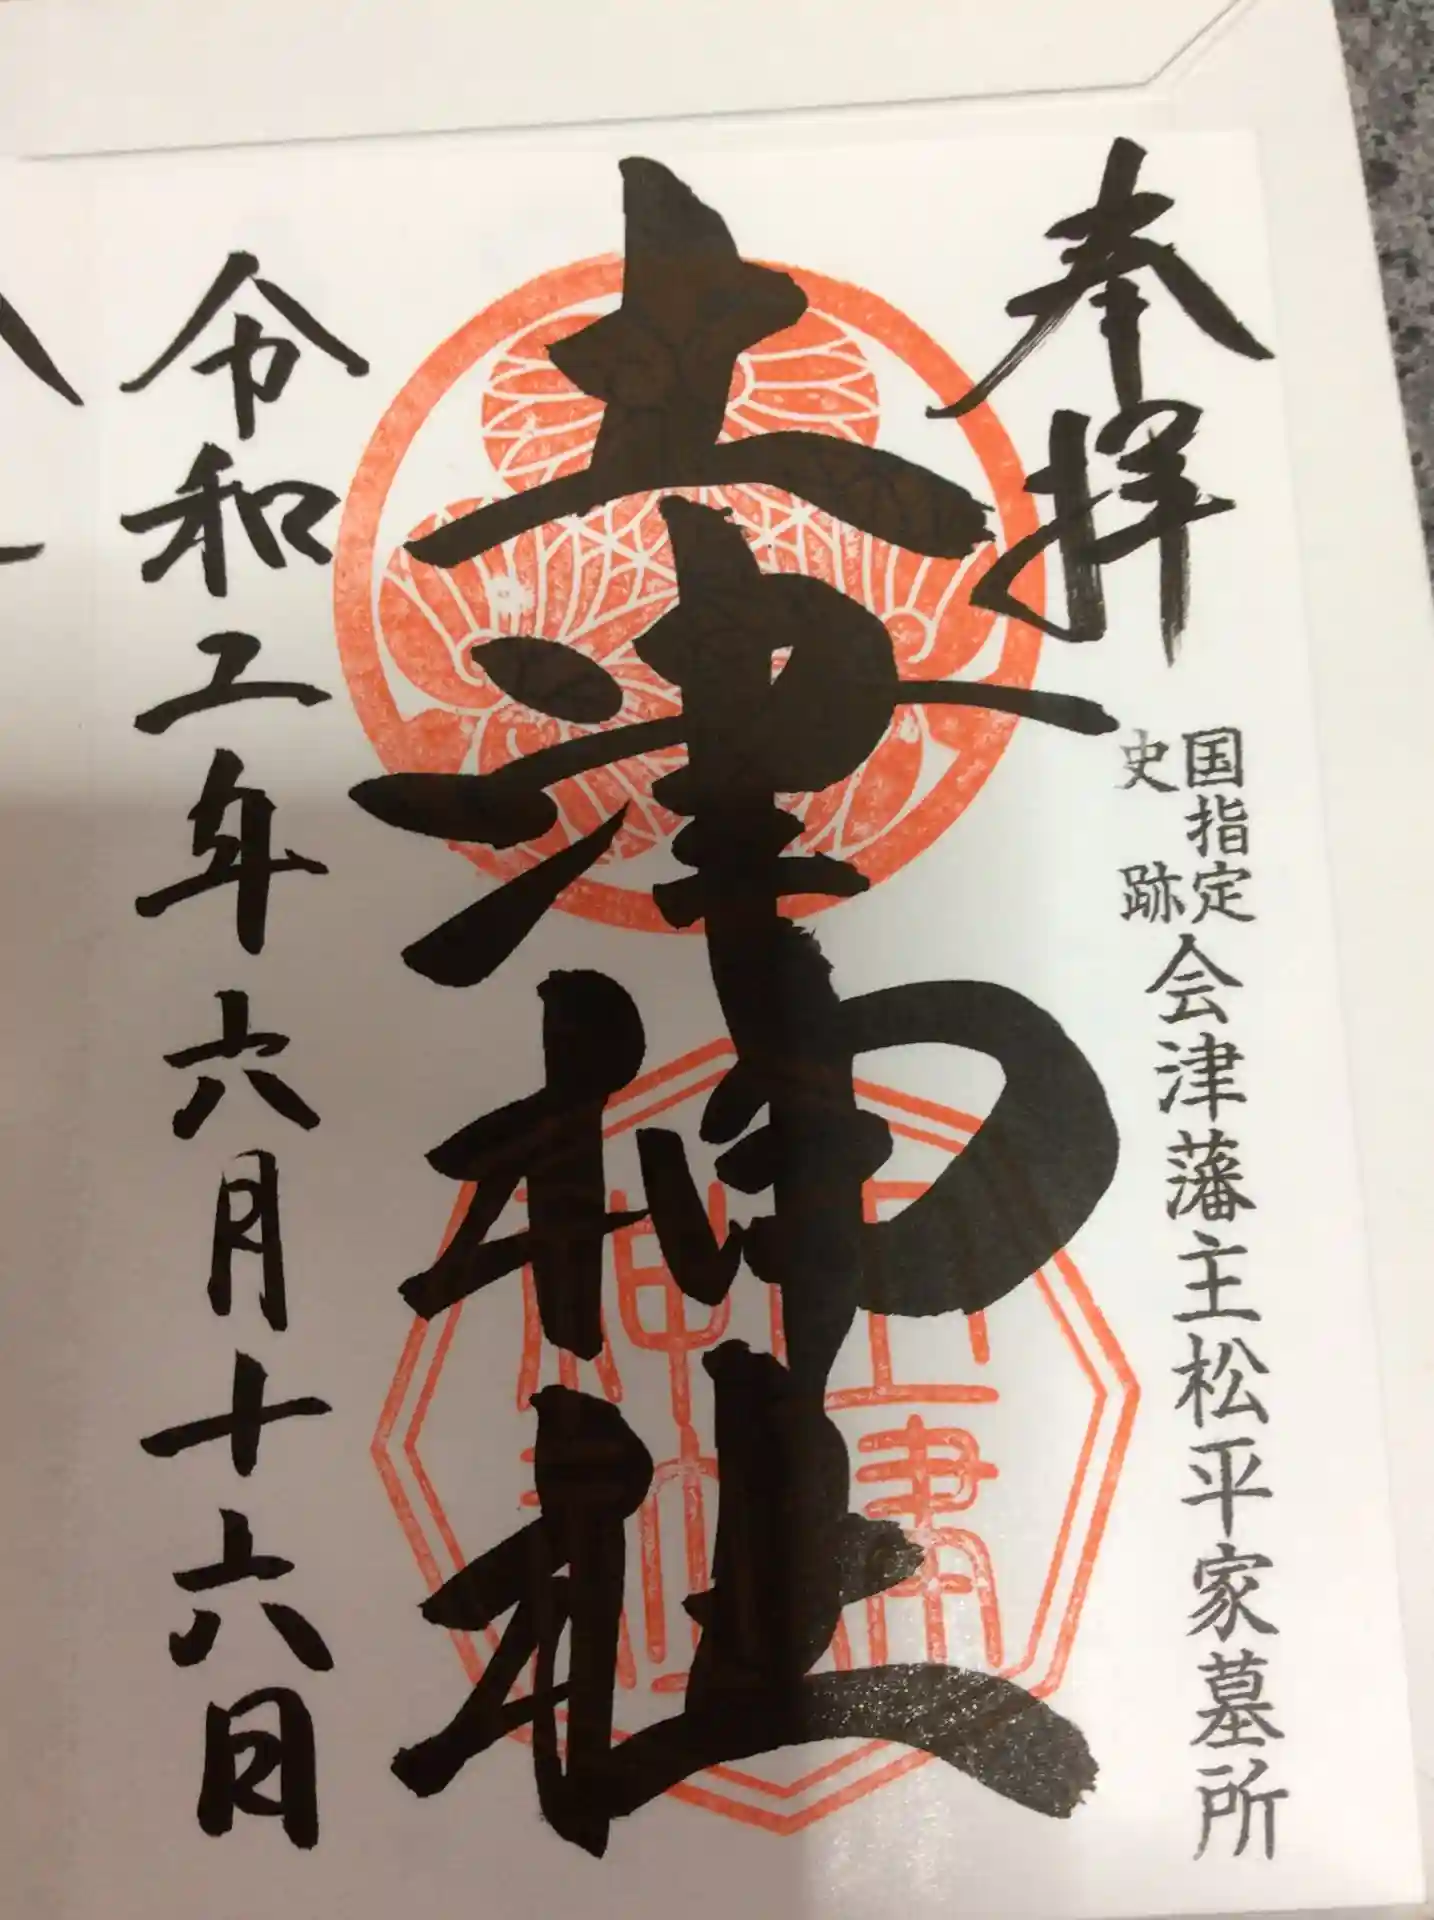 奉拝
国指定
史跡
会津藩主松平家墓所
土津神社
土津
神社
令和二年六月十六日